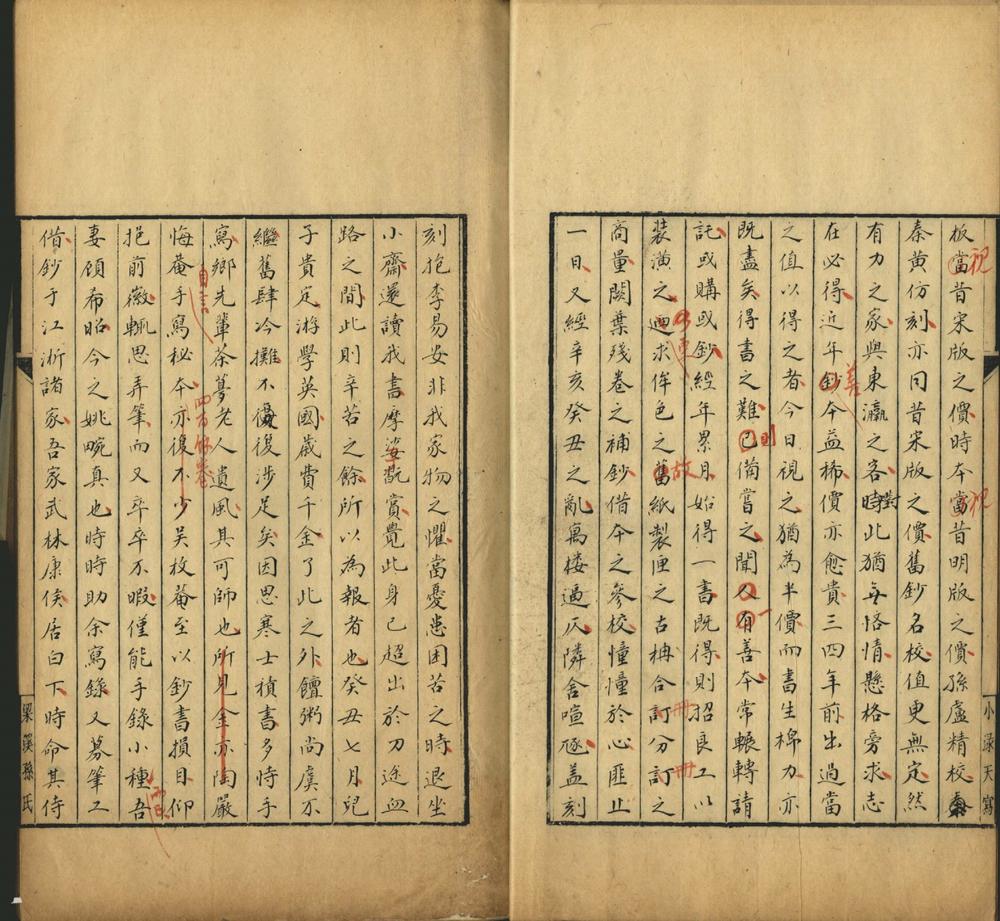 板當昔宋版之價時本當昔明版之價孫盧精校
秦黃仿刻亦同昔宋版之價舊鈔名校值更無定然
有力之家與東瀛之客對時此猶無恡情懸格旁求志
在必得近年鈔本益稀價亦愈貴三四年前出過當
之值以得之者今日視之猶為半價而書生棉力亦
既盡矣得書之難已備嘗之聞人有善本常輾轉請
託或購或鈔經年累月始得一書既得則招良工以
裝潢之迴求侔色之舊紙製匣之古冊合訂分訂之
商量闕葉殘卷之補鈔借本之參校憧憧於心匪止
一日又經辛亥癸丑之亂萬樓逼仄隣舍喧豗蓋刻
小淥天寫
祝
祝
善
則
一
故
冊
冊
刻抱李易安非我家物之懼當憂患困苦之時退坐
小齋還讀我書摩娑翫賞覺此身已超出於刀途血
路之間此則辛苦之餘所以為報者也癸丑七月兒
子貴定游學英國歲費千金了此之外饘粥尚虞不
繼舊肆冷攤不優復涉足矣因思寒士積書多恃手
寫鄉先輩荼夢老人遺風其可師也所見金亦陶嚴
悔菴手寫秘本亦復不少吴枚菴至以鈔書損目仰
挹前徽輒思弄筆而又卒卒不暇僅能手錄小種吾
妻顧希昭今之姚畹真也時時助余寫錄又募筆工
借鈔于江浙諸家吾家武林康侯居白下時命其侍
自言
梁溪孫氏